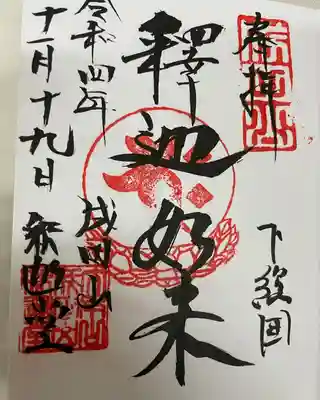 奉拝
下総国
釋迦如来
成田山
令和四年
十一月十九日
釈迦堂